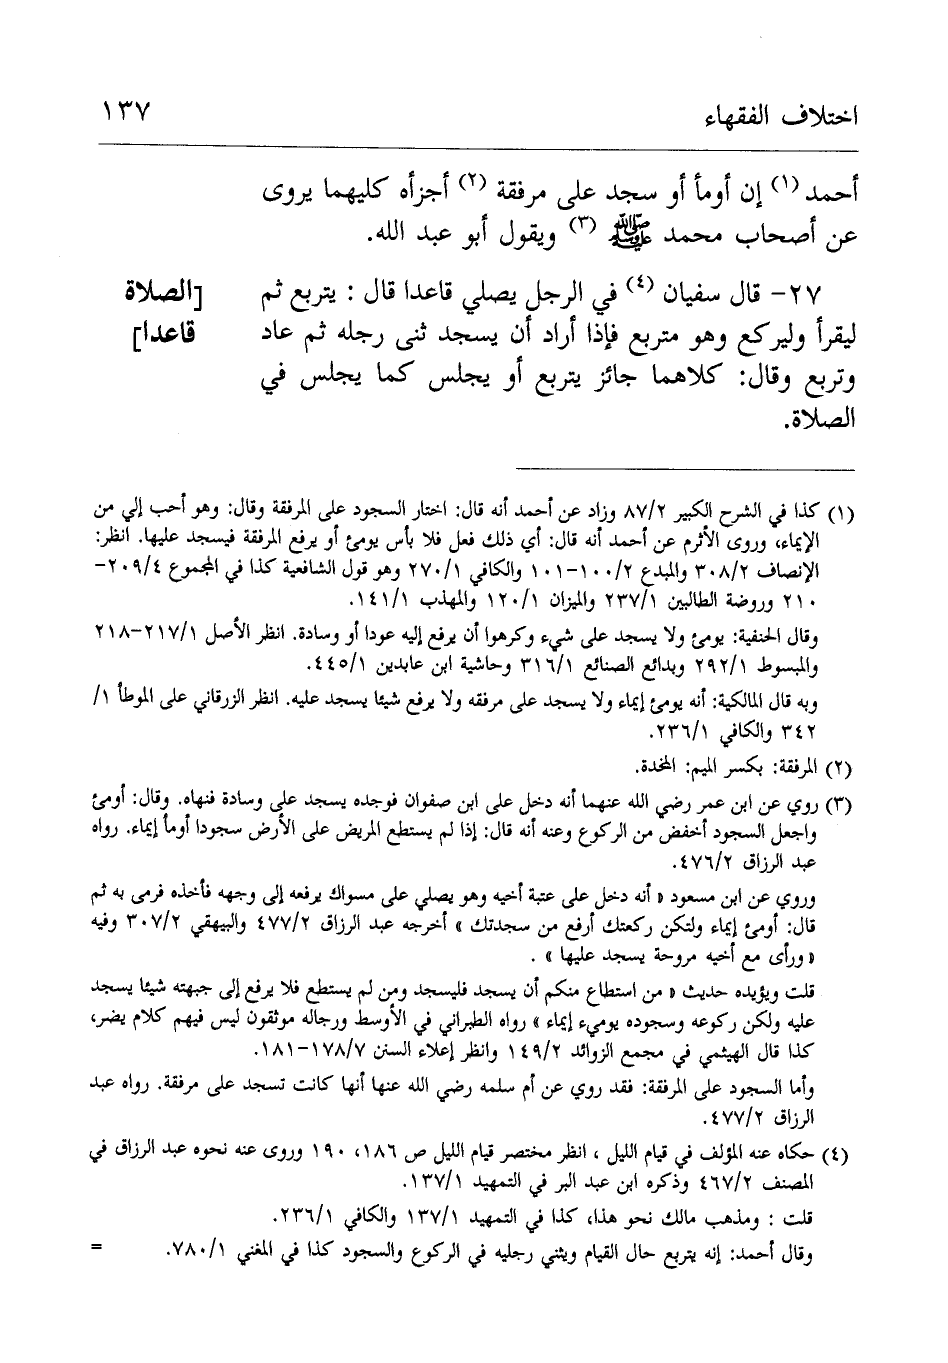 اختلاف الفقهاء
١٣٧
أحمد (١) إن أومأ أو سجد على مرفقة (٢) أجزأه كليهما يروى
عن أصحاب محمد ﷺ (٣) ويقول أبو عبد الله.
٢٧- قال سفيان (٤) في الرجل يصلي قاعدا قال : يتربع ثم
[الصلاة
ليقرأ وليركع وهو متربع فإذا أراد أن يسجد ثنى رجله ثم عاد
قاعدا]
وتربع وقال: كلاهما جائز يتربع أو يجلس كما يجلس في
الصلاة.
(١) كذا في الشرح الكبير ٨٧/٢ وزاد عن أحمد أنه قال: اختار السجود على المرفقة وقال: وهو أحب إلي من
الإيماء، وروى الأثرم عن أحمد أنه قال: أي ذلك فعل فلا بأس يومئ أو يرفع المرفقة فيسجد عليها. انظر:
الإنصاف ٣٠٨/٢ والمبدع ١٠٠/٢-١٠١ والكافي ٢٧٠/١ وهو قول الشافعية كذا في المجموع ٢٠٩/٤-
٢١٠ وروضة الطالبين ٢٣٧/١ والميزان ١٢٠/١ والمهذب ١٤١/١.
وقال الحنفية: يومئ ولا يسجد على شيء وكرهوا أن يرفع إليه عودا أو وسادة. انظر الأصل ٢١٧/١-٢١٨
والمبسوط ٢٩٢/١ وبدائع الصنائع ٣١٦/١ وحاشية ابن عابدين ٤٤٥/١.
وبه قال المالكية: أنه يومئ إيماء ولا يسجد على مرفقه ولا يرفع شيئا يسجد عليه. انظر الزرقاني على الموطأ ١/
٣٤٢ والكافي ٢٣٦/١.
(٢) المرفقة: بكسر الميم: المخدة.
(٣) روي عن ابن عمر رضي الله عنهما أنه دخل على ابن صفوان فوجده يسجد على وسادة فنهاه. وقال: أومئ
واجعل السجود أخفض من الركوع وعنه أنه قال: إذا لم يستطع المريض على الأرض سجودا أومأ إيماء. رواه
عبد الرزاق ٤٧٦/٢.
وروي عن ابن مسعود « أنه دخل على عتبة أخيه وهو يصلي على مسواك يرفعه إلى وجهه فأخذه فرمى به ثم
قال: أومئ إيماء ولتكن ركعتك أرفع من سجدتك » أخرجه عبد الرزاق ٤٧٧/٢ والبيهقي ٣٠٧/٢ وفيه
« ورأى مع أخيه مروحة يسجد عليها » .
قلت ويؤيده حديث « من استطاع منكم أن يسجد فليسجد ومن لم يستطع فلا يرفع إلى جبهته شيئا يسجد
عليه ولكن ركوعه وسجوده يوميء إيماء » رواه الطبراني في الأوسط ورجاله موثقون ليس فيهم كلام يضر،
كذا قال الهيثمي في مجمع الزوائد ١٤٩/٢ وانظر إعلاء السنن ١٧٨/٧-١٨١.
وأما السجود على المرفقة: فقد روي عن أم سلمه رضي الله عنها أنها كانت تسجد على مرفقة. رواه عبد
الرزاق ٤٧٧/٢.
(٤) حكاه عنه المؤلف في قيام الليل ، انظر مختصر قيام الليل ص ١٨٦، ١٩٠ وروى عنه نحوه عبد الرزاق في
المصنف ٤٦٧/٢ وذكره ابن عبد البر في التمهيد ١٣٧/١.
قلت : ومذهب مالك نحو هذا، كذا في التمهيد ١٣٧/١ والكافي ٢٣٦/١.
وقال أحمد: إنه يتربع حال القيام ويثني رجليه في الركوع والسجود كذا في المغني ٧٨٠/١. =